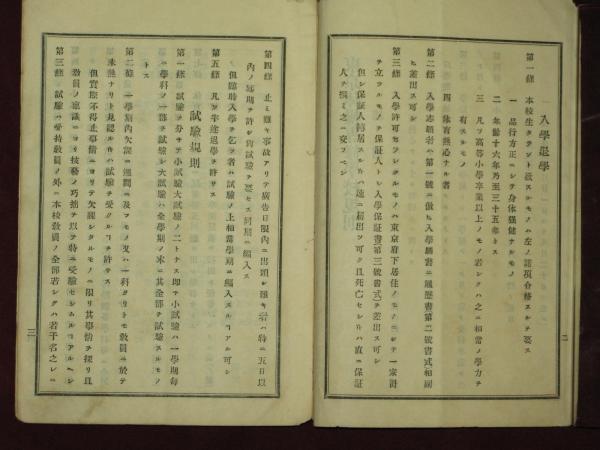 入學退學
第一條 本校生タラント欲スルモノハ左ノ諸項合格スルヲ要ス
一 品行方正ニシテ身体强健ナルモノ
二 年齡十六年乃至三十五年トス
三 凡ソ高等小學卒業以上ノモノ若シクハ之ニ相當ノ學力ヲ
有スルモノ
四 体育熱心ナル者
第二條 入學志願者ハ第一號ニ倣ヒ入學願書ニ履歷書第二號書式相添
ヒ差出ス可シ
第三條 入學許可セラレタルモノハ東京府下居住ノモノニシテ一家計
ヲ立ツルモノヲ保証人トシ入學保証書第三號書式ヲ差出ス可シ
但シ保証人轉居スルトキハ速ニ屆出ツ可ク且死亡セシトキハ直ニ保証
人ヲ撰ミ之ニ交フベシ
二
第四條 止ミ難キ事故アリテ廣告日限內ニ出頭シ難キ者ハ特ニ五日以
內ノ延期ヲ許シ尙試驗ヲ要セス初期ニ編入ス
但臨時入學ヲ乞フ者ハ試驗ノ上相當學期ニ編入スルヿアル可シ
第五條 凡ソ半途退學ヲ許サス
試驗規則
第一條 試驗ヲ分チテ小試驗大試驗ノ二トナス即チ小試驗ハ一學期每
ニ學科ノ一部ヲ試驗シ大試驗ハ全學期ノ末ニ其全部ヲ試驗スルモノ
トス
第二條 一學期內欠課二週間ニ及フモノ又ハ一科タリトモ敎員ニ於テ
未熟ナリト見認ルトキハ試驗ヲ受クルヿヲ許サス
但實際不得止事情ニヨリテ欠課シタルモノニ限リ其事情ヲ採リ且
敎員ノ意議ニヨリ技藝ノ巧拙ヲ以テ特ニ受驗セシムルヿアルベシ
第三條 試驗ハ受持敎員ノ外ニ本校敎員ノ全部若シクハ若干名之レニ
三